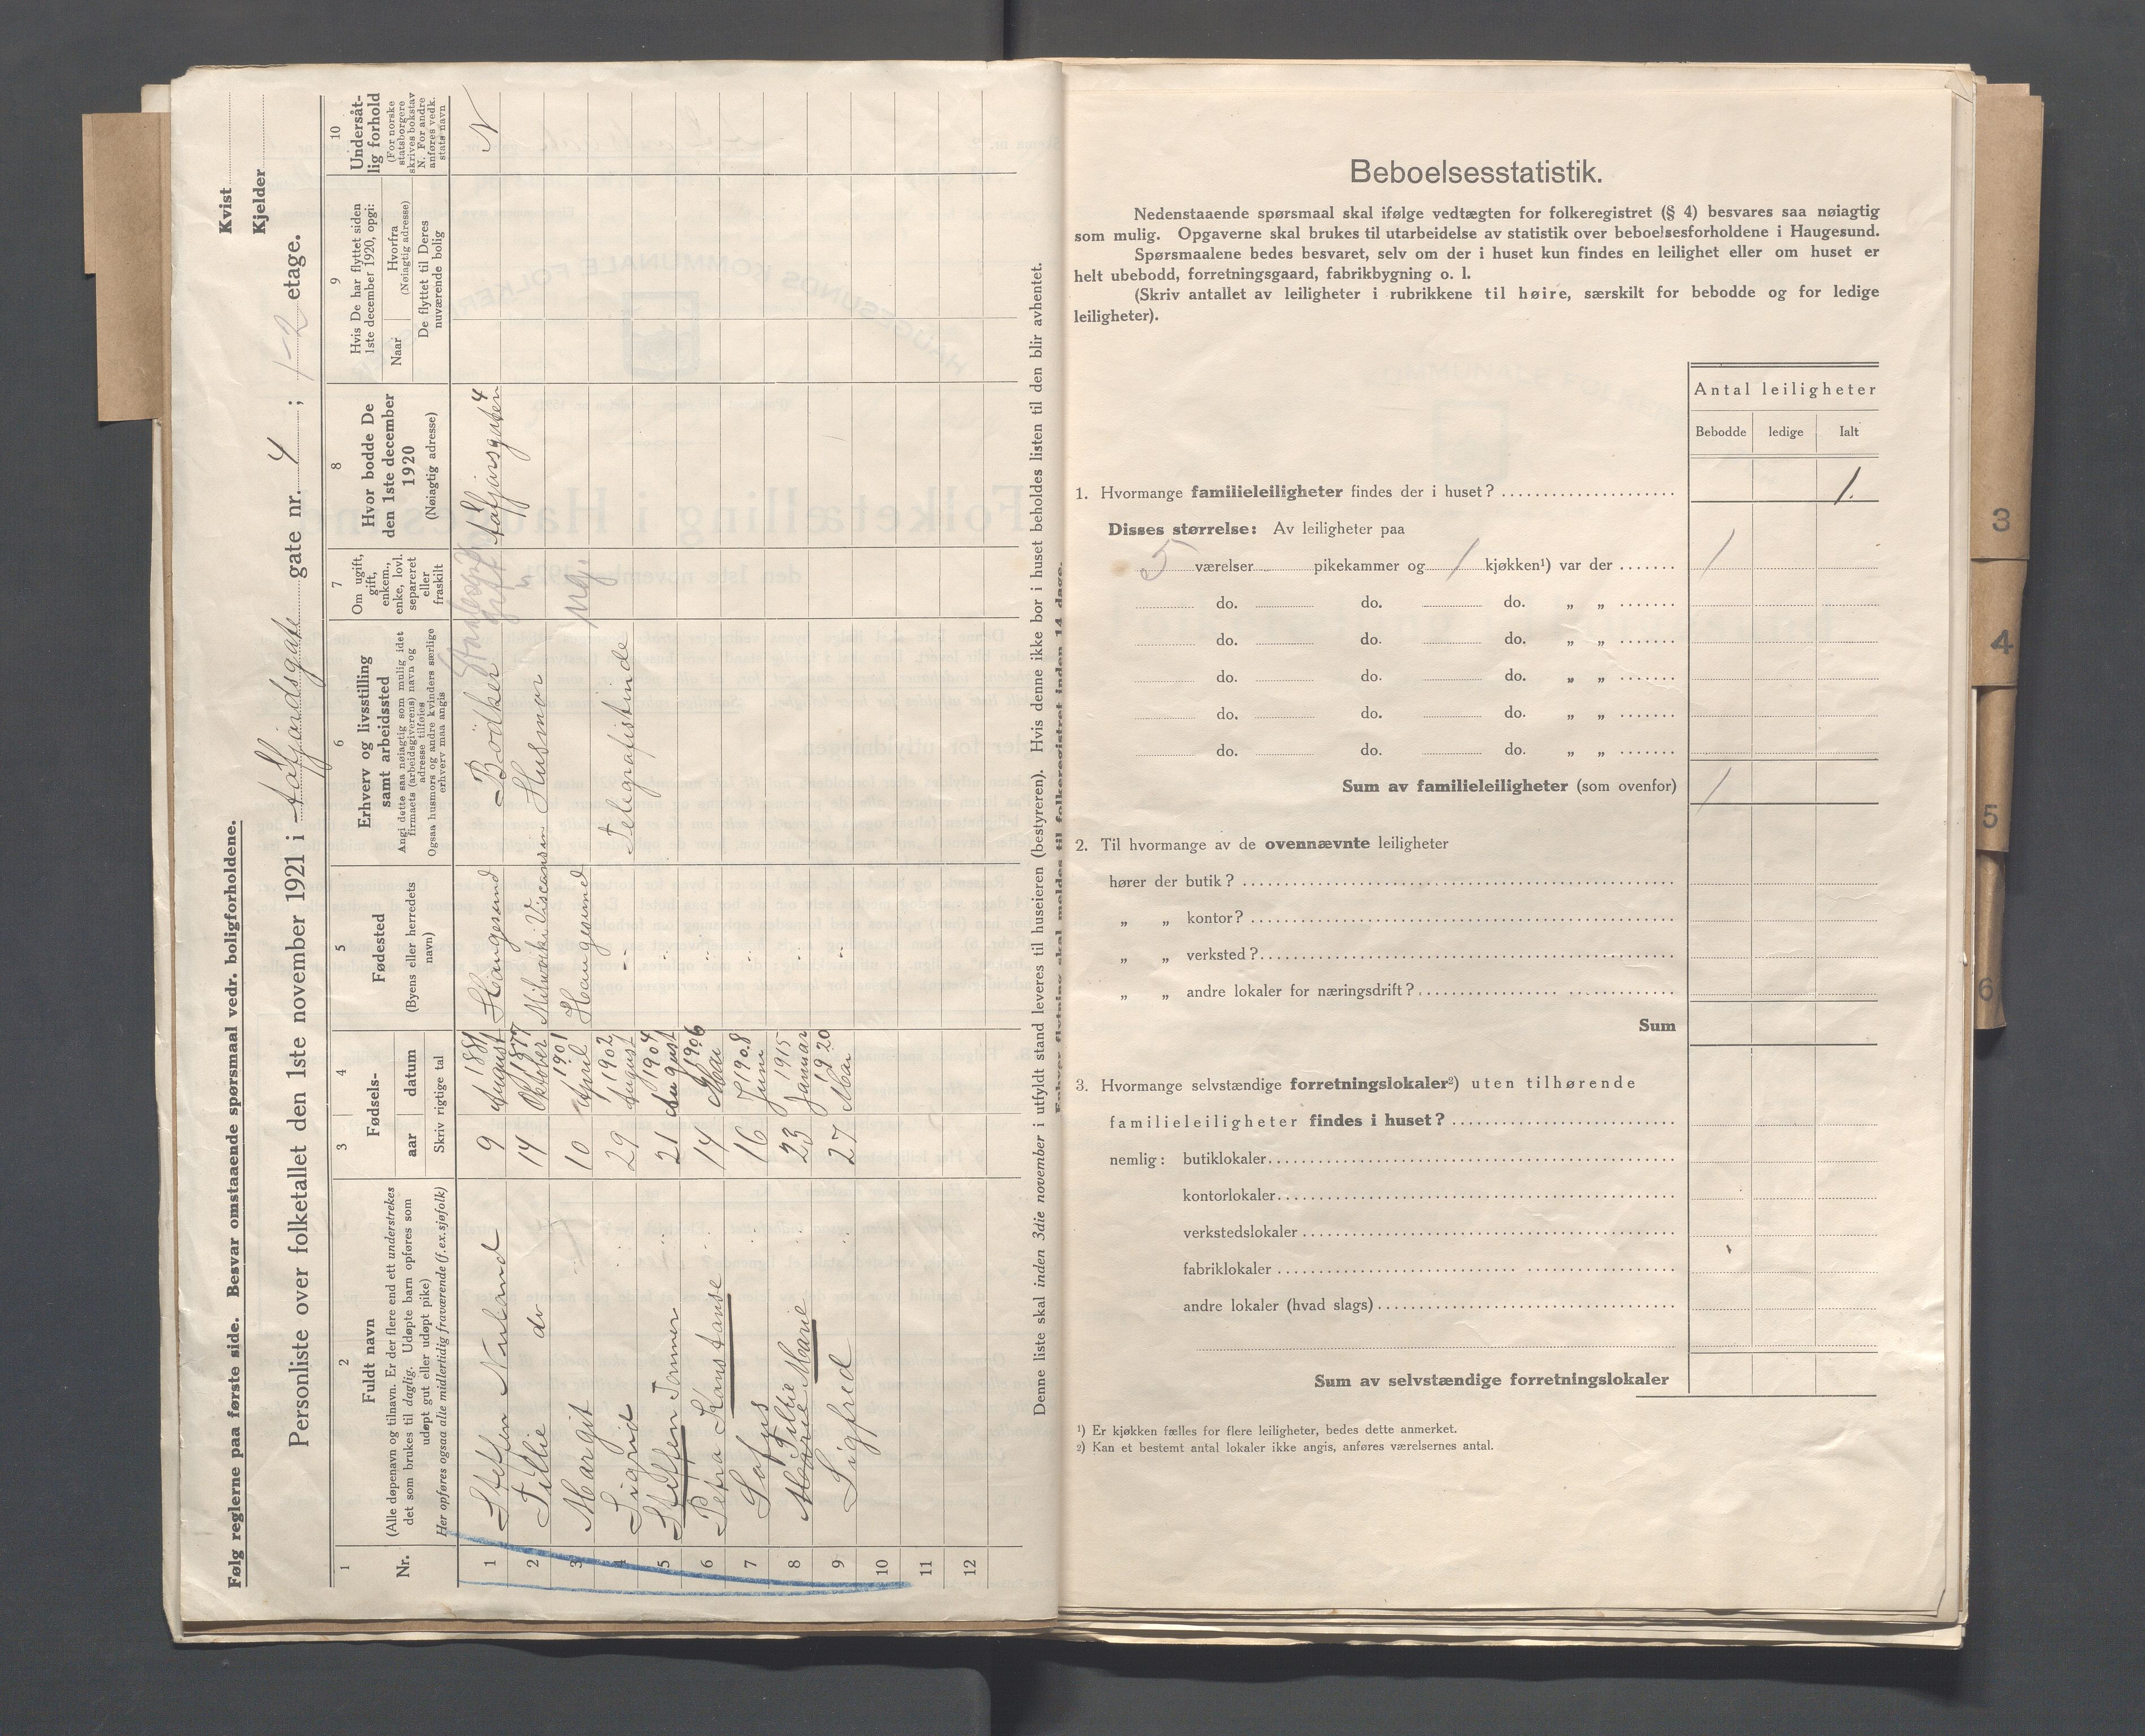 Følg reglerne paa første side. Besvar omstaaende spørsmaal vedr. boligforholdene.
Kvist
Kjelder
Personliste over folketallet den 1ste november 1921 i gate nr. 4 ; 1-2 etage.
1
Nr.
2
Fuldt navn
(Alle døpenavn og tilnavn. Er der flere end ett understrekes
det som brukes til daglig. Udøpte barn opføres som
udøpt gut eller udøpt pike)
Her opføres ogsaa alle midlertidig fraværende (f.ex.sjøfolk)
3 4
Fødsels-
aar datum
Skriv rigtige tal
5
Fødested
(Byens eller herredets
navn)
6
Erhverv og livsstilling
samt arbeidssted
Angi dette saa nøiagtig som mulig idet
firmaets (arbeidsgiverens) navn og
adresse tilføies
Ogsaa husmors og andre kvinders særlige
erhverv maa angis
7
Om ugift,
gift,
enkem.,
enke, lovl.
separeret
eller
fraskilt
8
Hvor bodde De
den 1ste december
1920
(Nøiagtig adresse)
9
Hvis De har flyttet siden
1ste december 1920, opgi:
Naar
Hvorfra
(Nøiagtig adresse)
De flyttet til Deres
nuværende bolig
10
Undersåt-
lig forhold
(For norske
statsborgere
skrives bokstav
N. For andre
anføres vedk.
stats navn
1 Steffen Nuland 9 August 1881 Haugesund Bödker gift 4 N
2 Tillie do 14 Oktober 1877 Husmor
3 Margit 10 April 1901 Haugesund ug.
4 Sigrid 29 August 1902 Telegrafistinde
5 Steffen 21 August 1904
6 Petra Konstanse 14 Mai 1906
7 Sofus 16 Juni 1908
8 Tillie Marie 23 Januar 1915
9 Sigfred 27 Mai 1920
10
11
12
Denne liste skal inden 3die november i utfyldt stand leveres til huseieren (bestyreren). Hvis denne ikke bor i huset beholdes listen til den blir avhentet.
Enhver flytning skal meldes til folkeregistret inden 14 dage.
Beboelsesstatistik.
Nedenstaaende spørsmaal skal ifølge vedtægten for folkeregistret (§ 4) besvares saa nøiagtig
som mulig. Opgaverne skal brukes til utarbeidelse av statistik over beboelsesforholdene i Haugesund.
Spørsmaalene bedes besvaret, selv om der i huset kun findes en leilighet eller om huset er
helt ubebodd, forretningsgaard, fabrikbygning o. l.
(Skriv antallet av leiligheter i rubrikkene til høire, særskilt for bebodde og for ledige
leiligheter).
Antal leiligheter
Bebodde ledige Ialt
1. Hvormange familieleiligheter findes der i huset? 1.
Disses størrelse: Av leiligheter paa
5 værelser pikekammer og 1 kjøkken¹) var der 1
do. do. do. „ „
do. do. do. „ „
do. do. do. „ „
do. do. do. „ „
do. do. do. „ „
Sum av familieleiligheter (som ovenfor) 1
2. Til hvormange av de ovennævnte leiligheter
hører der butik?
„ „ kontor?
„ „ verksted?
„ „ andre lokaler for næringsdrift?
Sum
3. Hvormange selvstændige forretningslokaler²) uten tilhørende
familieleiligheter findes i huset?
nemlig: butiklokaler
kontorlokaler
verkstedslokaler
fabriklokaler
andre lokaler (hvad slags)
Sum av selvstændige forretningslokaler
¹) Er kjøkken fælles for flere leiligheter, bedes dette anmerket.
²) Kan et bestemt antal lokaler ikke angis, anføres værelsernes antal.
3
4
5
6